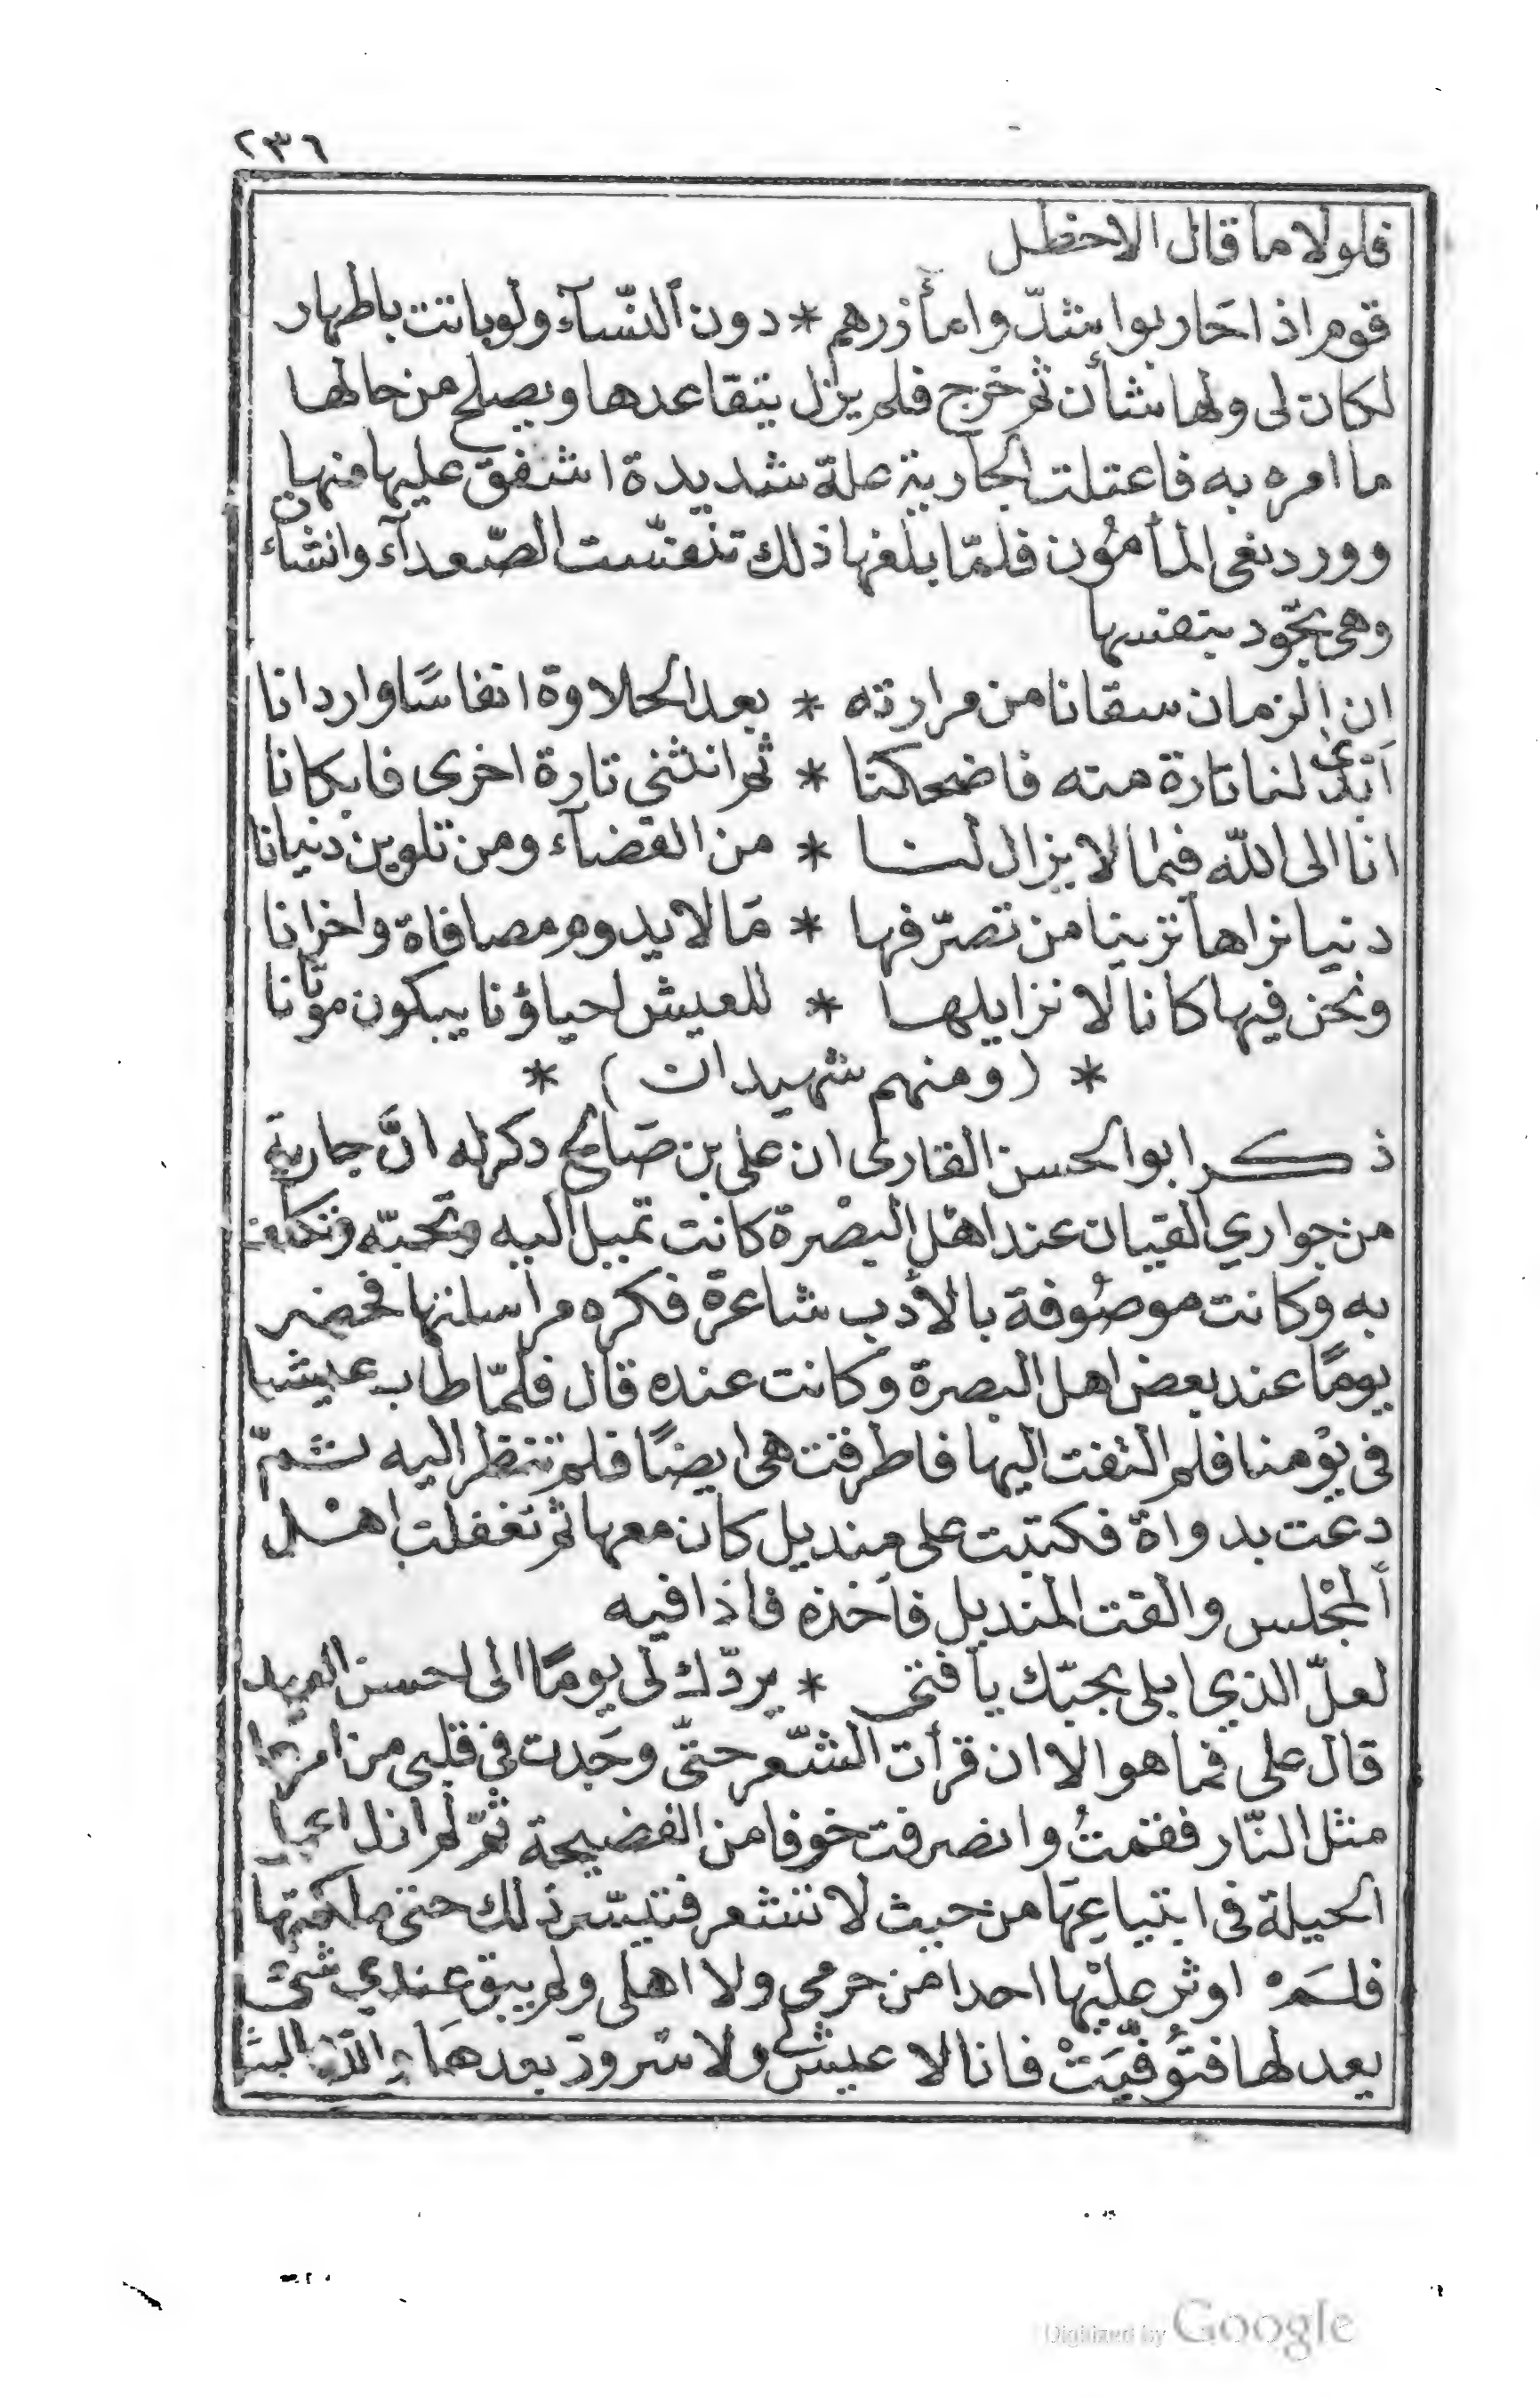 ٢٣٦
فلولا ما قال الاخطل
قوم اذا حَاربوا شدّوا مأزرهم * دون ألنّسآء ولو باتت باطهار
لكان لى ولها شأن ثم خرج فلم يزل يتقاعدها ويصلح من حالها
ما امره به فاعتلت الجارية علة شديدة اشفق عليها منها
وورد نعى المأمُون فلمّا بلغها ذلك تنفسّت الصّعدآء وانشأت
وهى تجّود بنفسها
ان الزمان سقانا من مرارته * بعد الحلاوة انفاسًا واردانا
أبدى لنا تارة منه فاضحكنا * ثم انثنى تارة اخرى فابكانا
انا الى اللّه فيما لا يزال لنا * من القضآء ومن تلوين دنيانا
دنيا نراها ترينا من تصرّفها * مَا لا يدوم مصافاة واخزانا
ونحن فيها كانا لا نزايلها * للعيش احياؤنا يبكون موتانا
* (ومنهم شهيدان) *
ذكر ابو الحسن القارى ان على بن صَالح ذكر له انَّ جارية
من جواري القيان عند اهْل البصْرة كانت تميل اليه وتحبّه وتكلف
به وكانت موصُوفة بالأدب شاعرة فكره مراسلتها فحضر
يومًا عند بعض اهل البصرة وكانت عنده قال فلمّا طاب عيشنا
فى يوْمنا فلم التفت اليها فاطرقت هى ايضًا فلم تنظر اليه ثمّ
دعت بدواة فكتبت على منديل كان معها ثم تغفلت اهْل
ألمجْلس والقت المنديل فأخذه فاذا فيه
لعلّ الذي ابلى بحبّك يا فتى * يردّك لى يومًا الى احسن العهد
قال على فما هو الا ان قرأت الشّعر حتّى وجَدت فى قلبى من امرها
مثل النّار فقمتُ وانصرفت خوفا من الفضيحة ثمّ لم ازل اعمل
الحيلة فى ابتياعِهَا من حيث لا تشعر فتيسّر ذلك حتى ملكتها
فلَمْ اوثر عليْها احدا من حرمى ولا اهلى ولم يبق عندي شئ
يعدلها فتُوفّيَتْ فانا لا عيش لى ولا سْرور بعدهَا والله
Digitized by Google